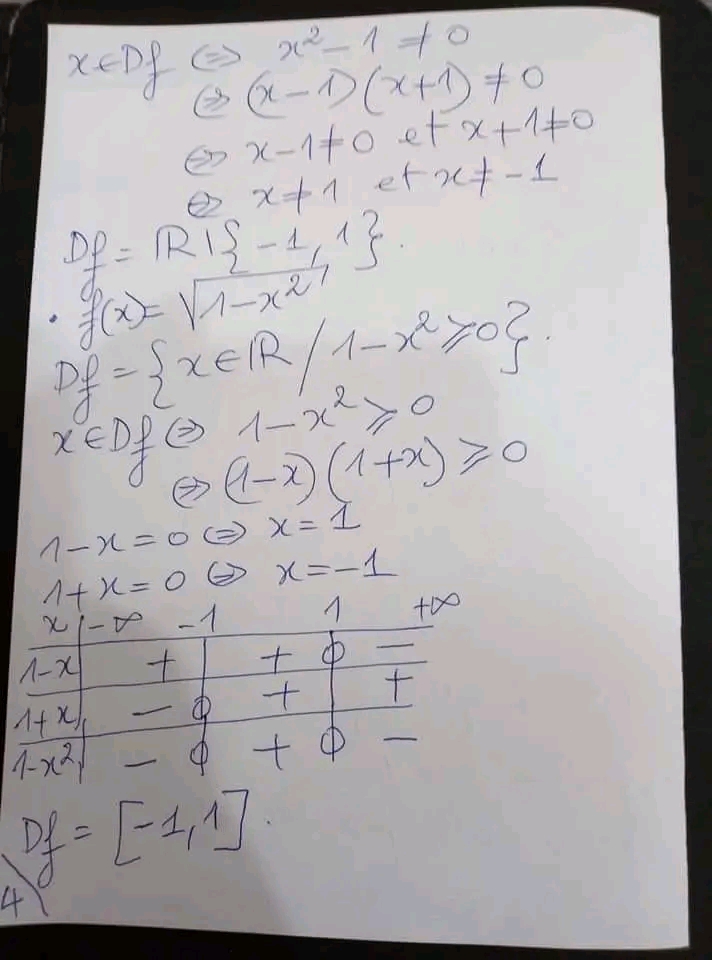 x∈Df ⇔ x²-1≠0
⇔ (x-1)(x+1)≠0
⇔ x-1≠0 et x+1≠0
⇔ x≠1 et x≠-1
Df = ℝ\{-1,1}.
• f(x)=√(1-x²)
Df = {x∈ℝ/1-x²⩾0}.
x∈Df ⇔ 1-x²⩾0
⇔ (1-x)(1+x)⩾0
1-x=0 ⇔ x=1
1+x=0 ⇔ x=-1
x -∞ -1 1 +∞
1-x + + 0 -
1+x - 0 + +
1-x² - 0 + 0 -
Df = [-1,1].
4